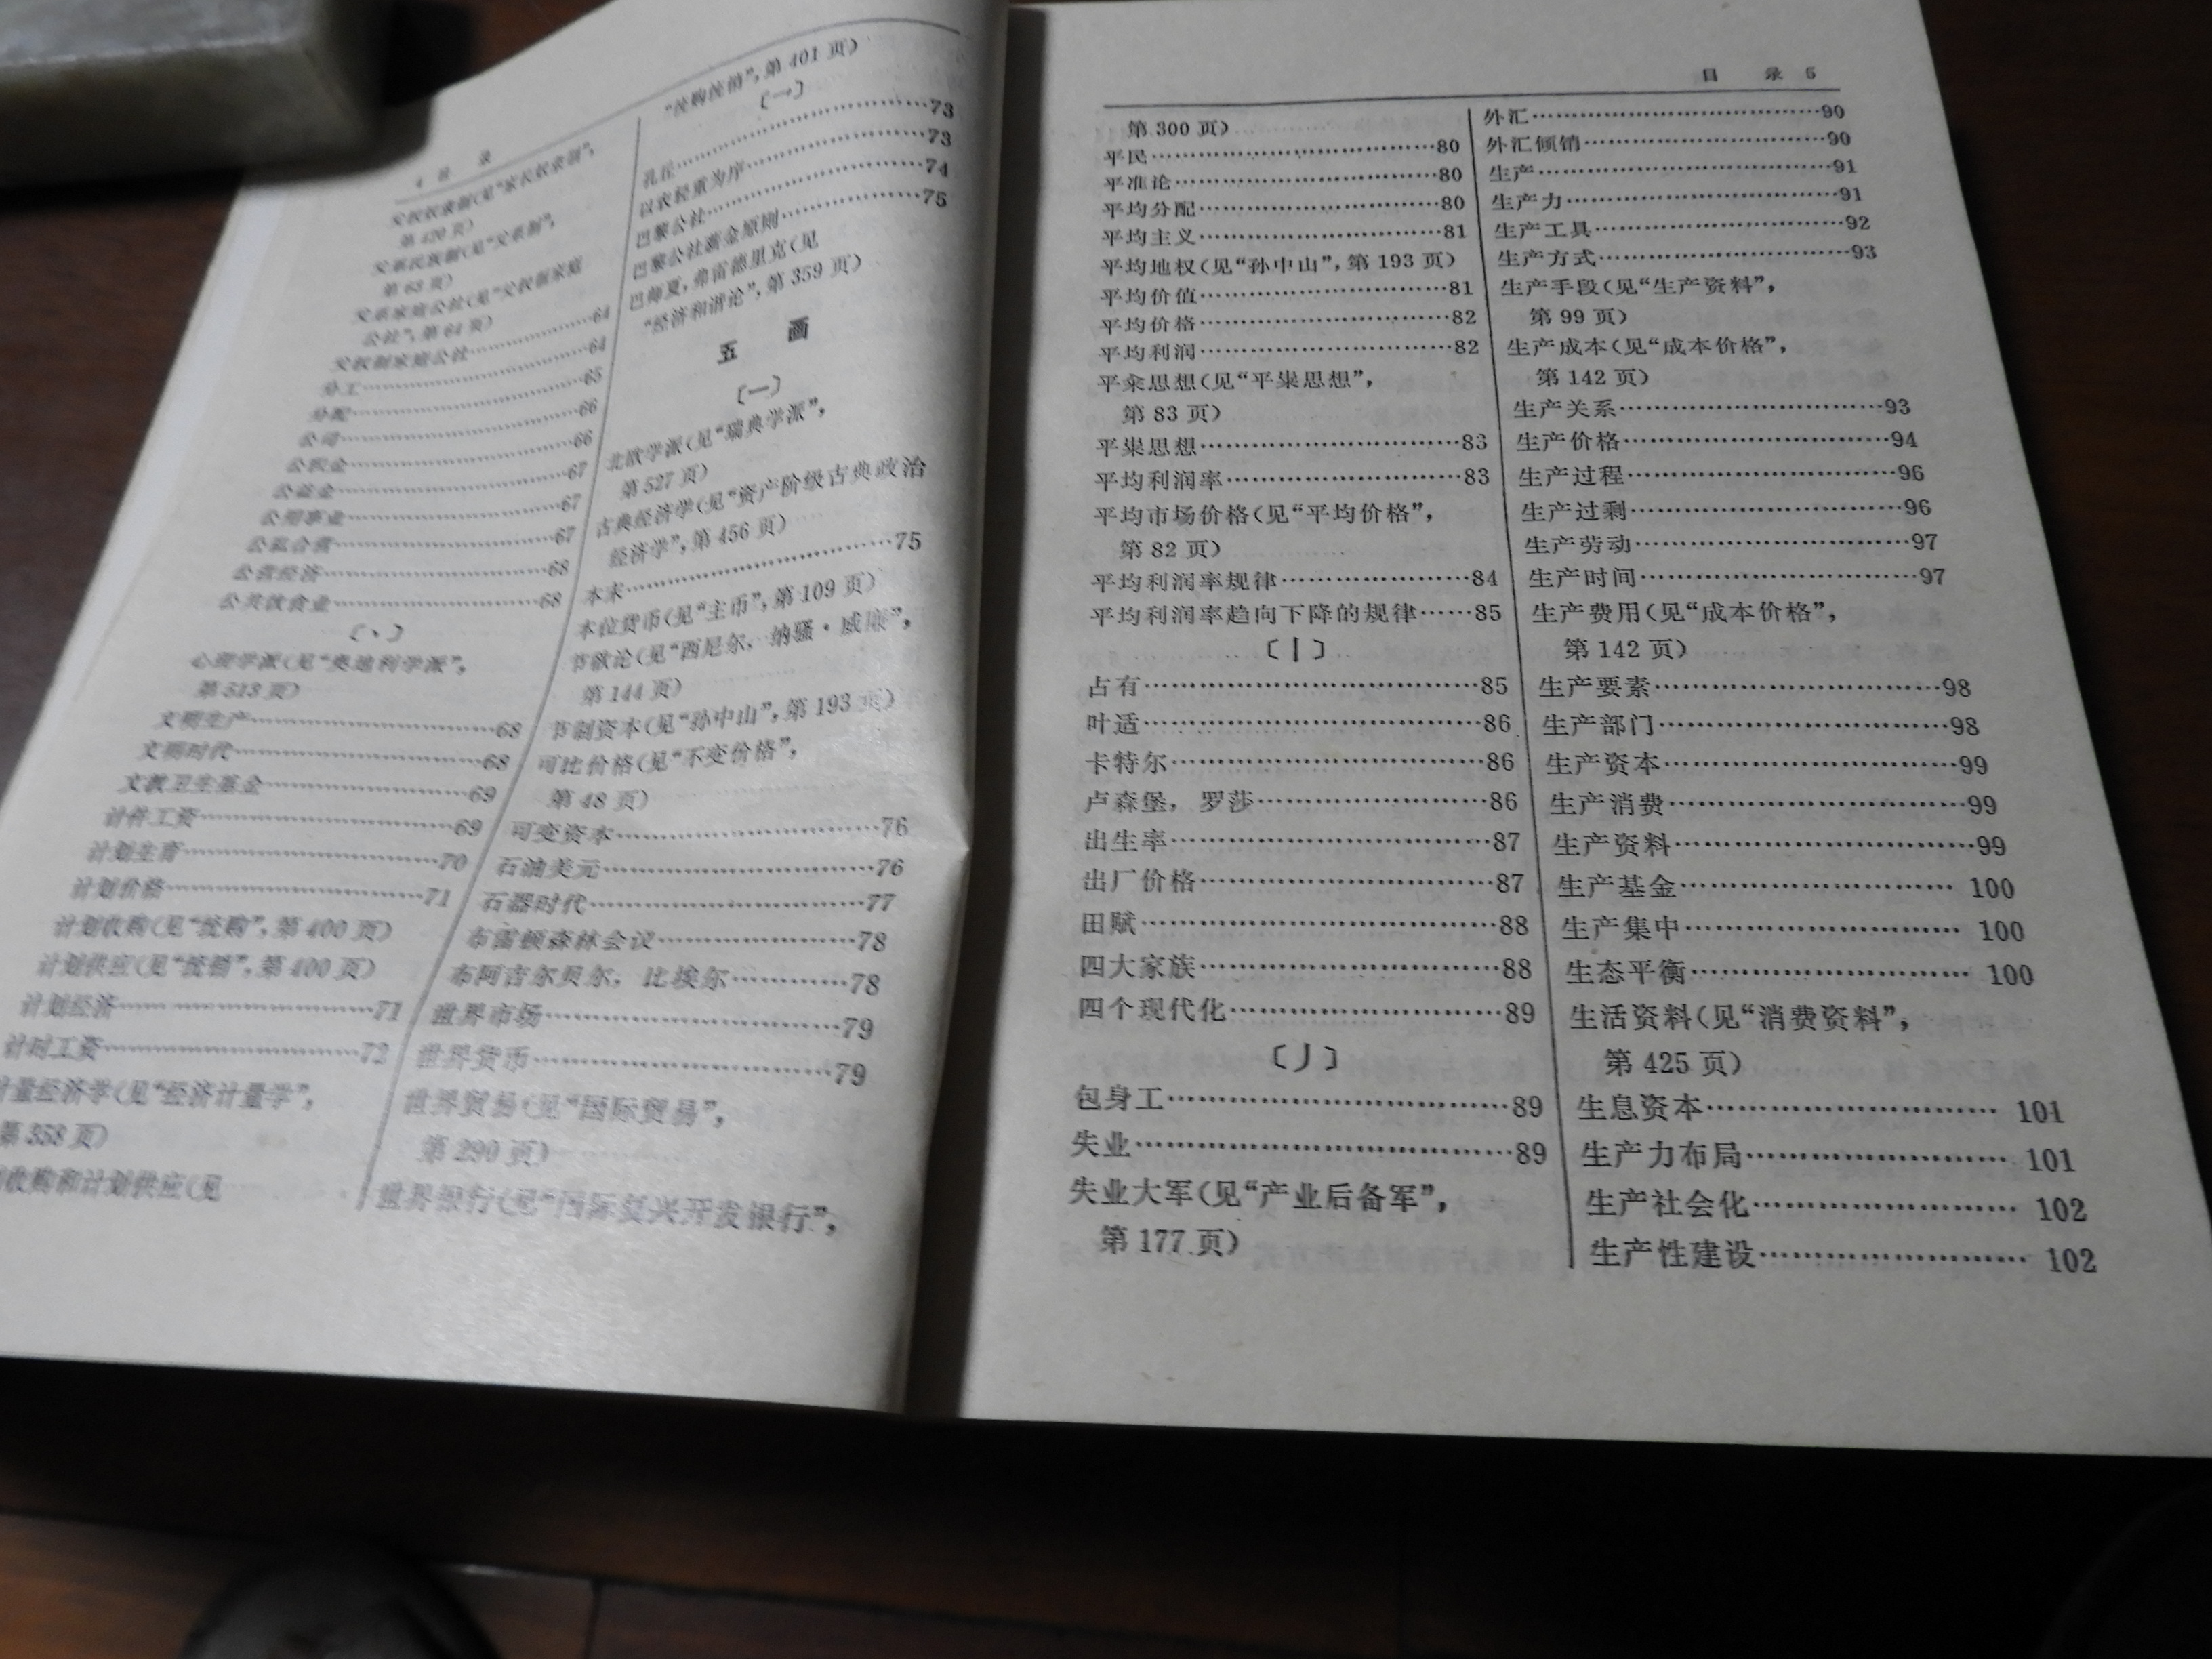 4 目 录
父权奴隶制(见“家长奴隶制”,
第420页)
父系氏族制(见“父系制”,
第63页)
父系家庭公社(见“父权制家庭
公社”,第64页)
父权制家庭公社……64
分工……64
分配……65
公司……66
公积金……66
公益金……67
公用事业……67
公私合营……67
公营经济……68
公共饮食业……68
〔丶〕
心理学派(见“奥地利学派”,
第513页)
文明生产……68
文明时代……68
文教卫生基金……69
计件工资……69
计划生育……70
计划价格……71
计划收购(见“统购”,第400页)
计划供应(见“统销”,第400页)
计划经济……71
计时工资……72
计量经济学(见“经济计量学”,
第358页)
收购和计划供应(见
“统购统销”,第401页)
〔一〕
孔丘……73
以农轻重为序……73
巴黎公社……74
巴黎公社薪金原则……75
巴师夏,弗雷德里克(见
“经济和谐论”,第359页)
五 画
〔一〕
北欧学派(见“瑞典学派”,
第527页)
古典经济学(见“资产阶级古典政治
经济学”,第456页)
本末……75
本位货币(见“主币”,第109页)
节欲论(见“西尼尔,纳骚·威廉”,
第144页)
节制资本(见“孙中山”,第193页)
可比价格(见“不变价格”,
第48页)
可变资本……76
石油美元……76
石器时代……77
布雷顿森林会议……78
布阿吉尔贝尔,比埃尔……78
世界市场……79
世界货币……79
世界贸易(见“国际贸易”,
第290页)
世界银行(见“国际复兴开发银行”,
目 录 5
第300页)
平民……80
平准论……80
平均分配……80
平均主义……81
平均地权(见“孙中山”,第193页)
平均价值……81
平均价格……82
平均利润……82
平籴思想(见“平粜思想”,
第83页)
平粜思想……83
平均利润率……83
平均市场价格(见“平均价格”,
第82页)
平均利润率规律……84
平均利润率趋向下降的规律……85
〔丨〕
占有……85
叶适……86
卡特尔……86
卢森堡,罗莎……86
出生率……87
出厂价格……87
田赋……88
四大家族……88
四个现代化……89
〔丿〕
包身工……89
失业……89
失业大军(见“产业后备军”,
第177页)
外汇……90
外汇倾销……90
生产……91
生产力……91
生产工具……92
生产方式……93
生产手段(见“生产资料”,
第99页)
生产成本(见“成本价格”,
第142页)
生产关系……93
生产价格……94
生产过程……96
生产过剩……96
生产劳动……97
生产时间……97
生产费用(见“成本价格”,
第142页)
生产要素……98
生产部门……98
生产资本……99
生产消费……99
生产资料……99
生产基金……100
生产集中……100
生态平衡……100
生活资料(见“消费资料”,
第425页)
生息资本……101
生产力布局……101
生产社会化……102
生产性建设……102